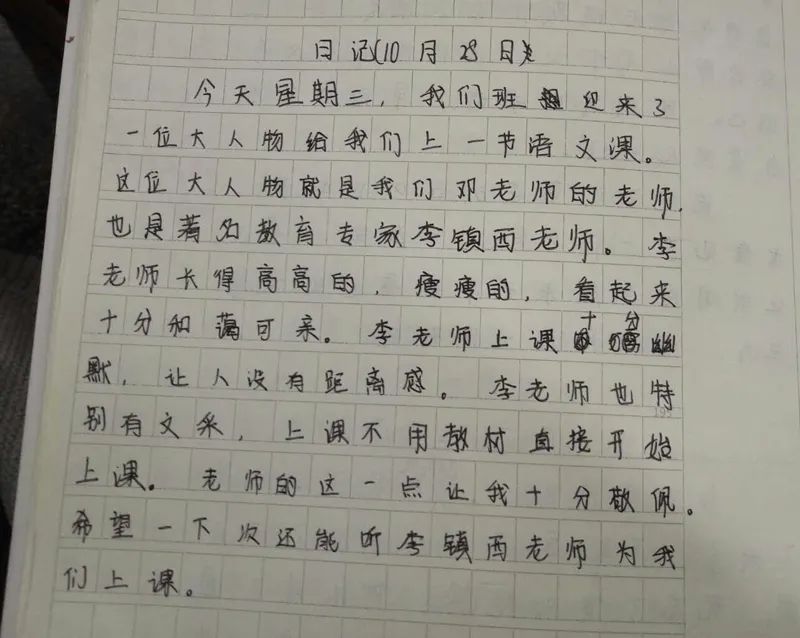 日记(10月28日)
今天星期三，我们班迎来了
一位大人物给我们上一节语文课。
这位大人物就是我们邓老师的老师，
也是著名教育专家李镇西老师。李
老师长得高高的，瘦瘦的，看起来
十分和蔼可亲。李老师上课十分幽
默，让人没有距离感。李老师也特
别有文采，上课不用教材直接开始
上课。老师的这一点让我十分敬佩。
希望一下次还能听李镇西老师为我
们上课。